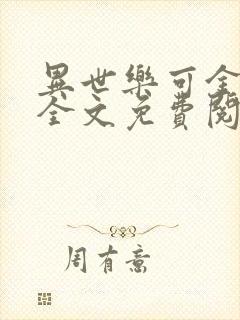 異世樂可全
全文免費閱
周有意